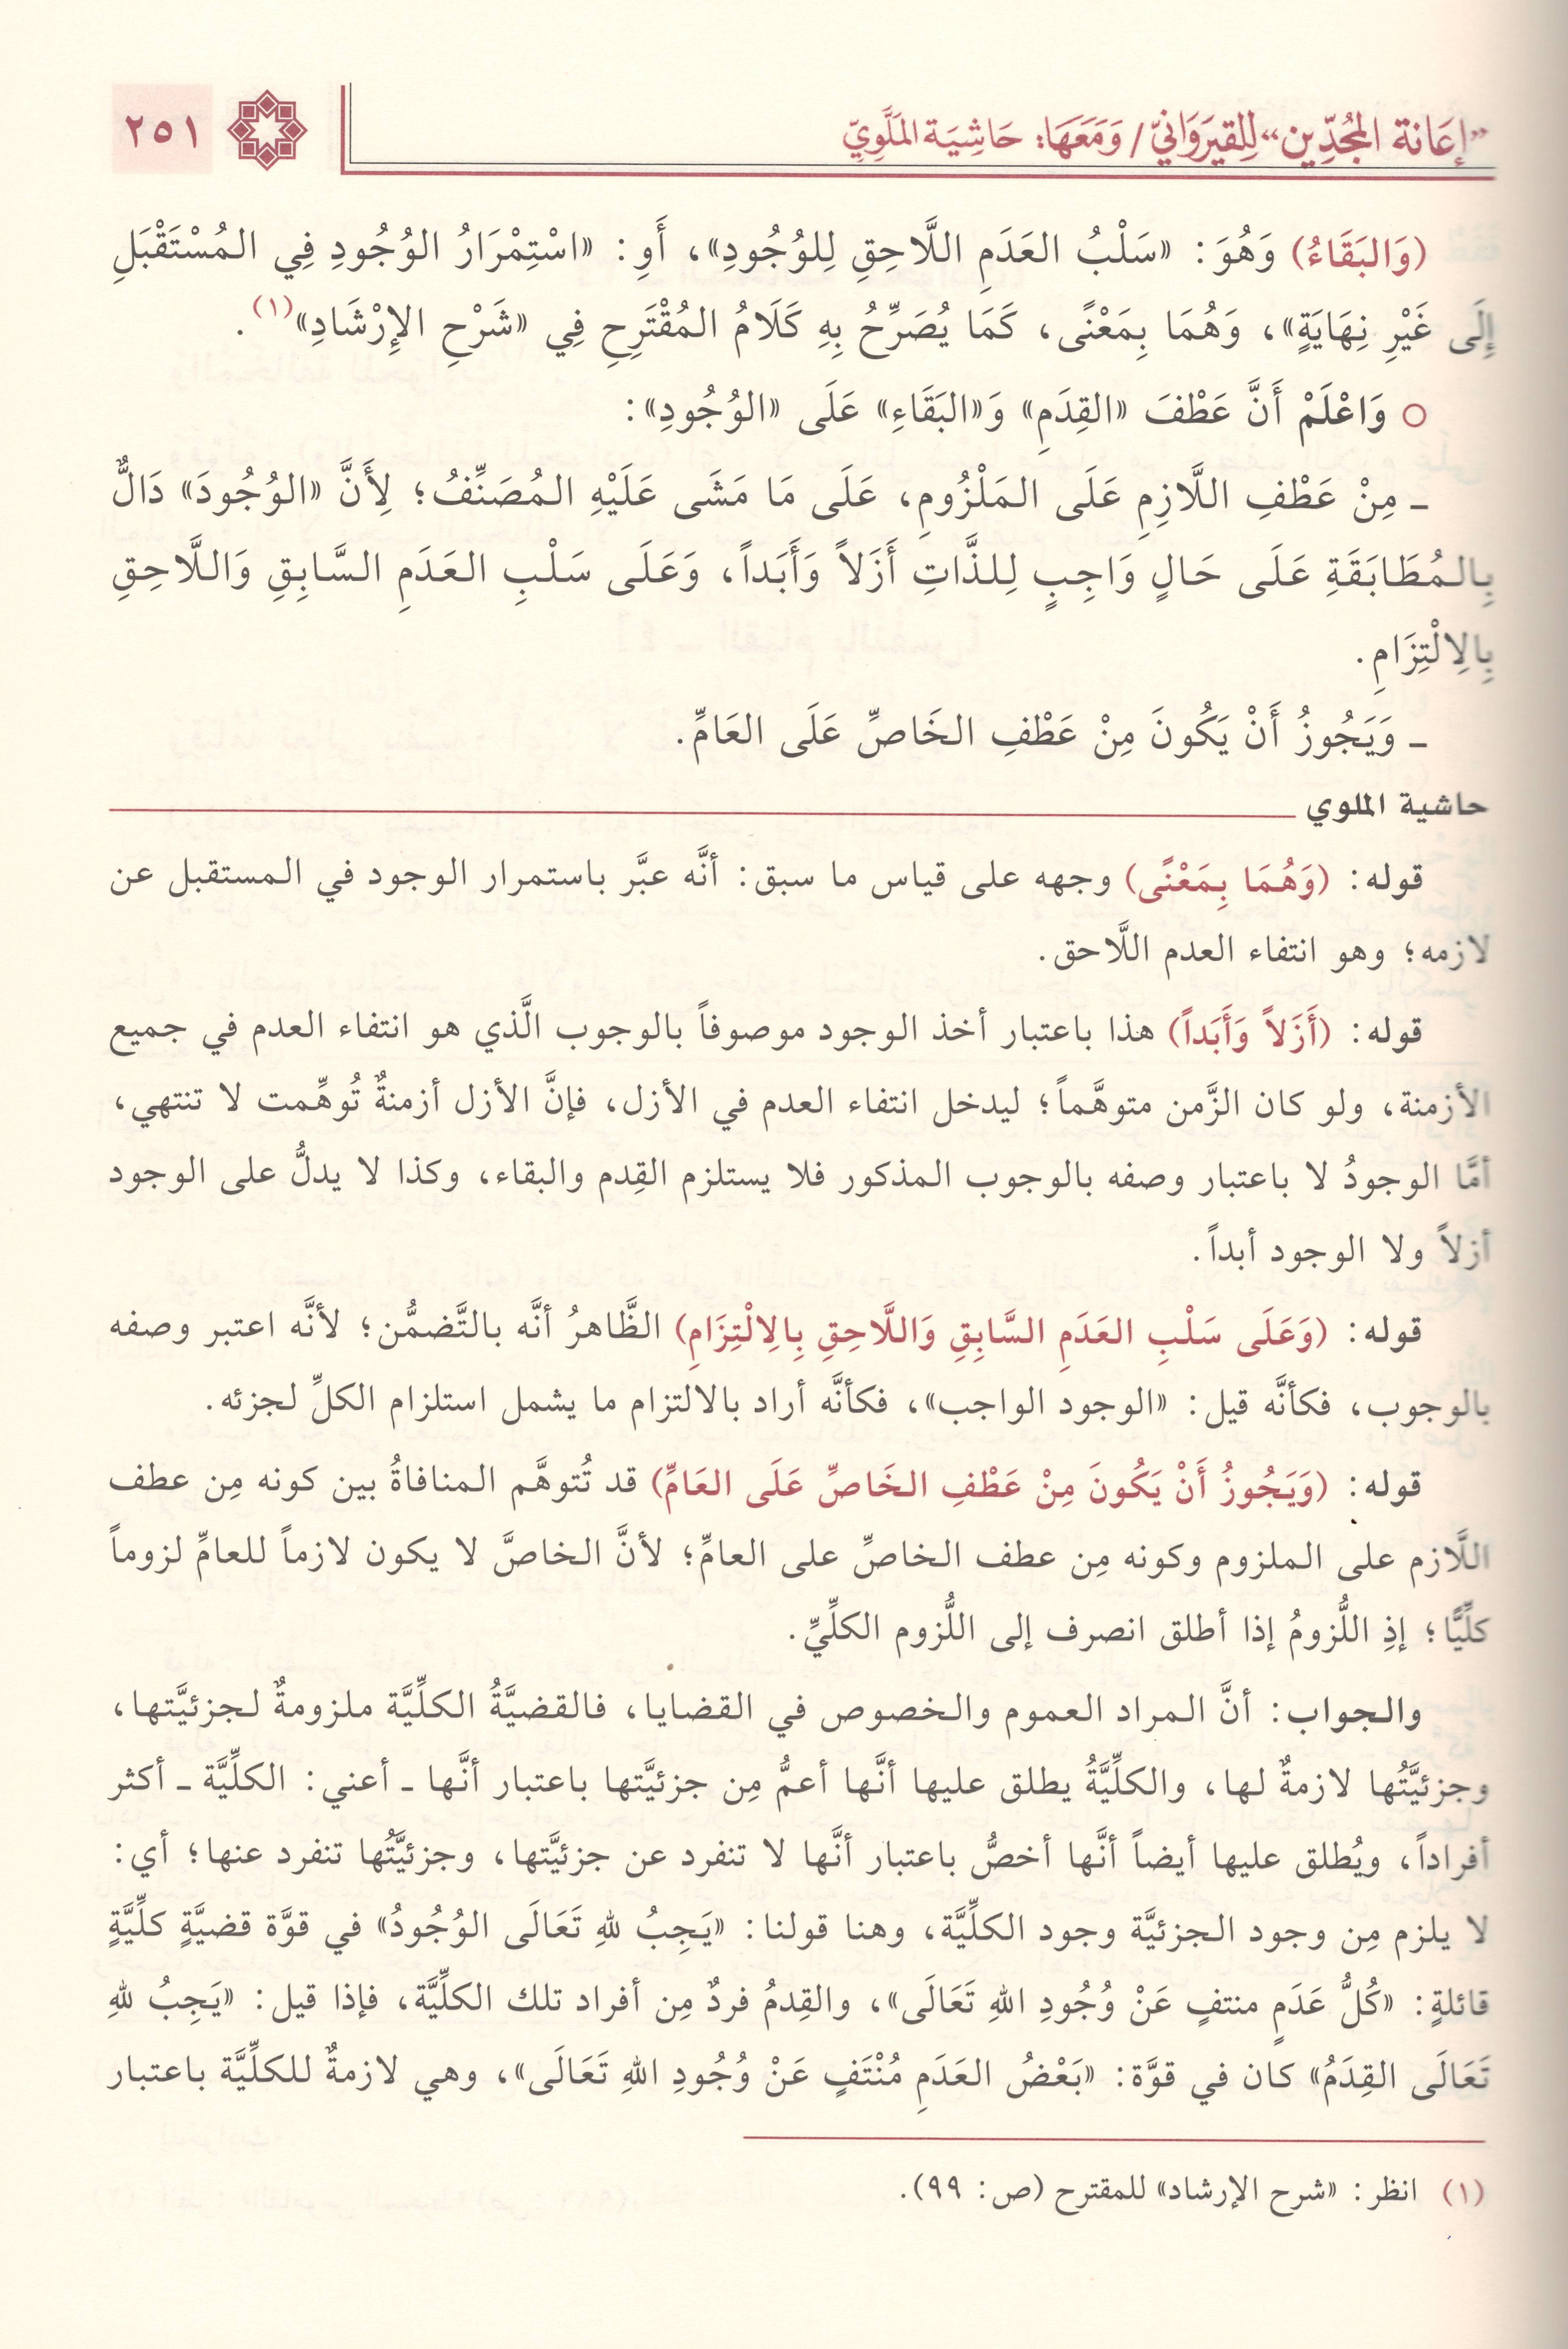 «إِعَانَة المُجُدِّين» لِلقيرَوَانيّ / وَمَعَهَا: حَاشِيَة المَلَّوِيّ
٢٥١
(وَالبَقَاءُ) وَهُوَ: «سَلْبُ العَدَمِ اللَّاحِقِ لِلوُجُودِ»، أَوِ: «اسْتِمْرَارُ الوُجُودِ فِي المُسْتَقْبَلِ
إِلَى غَيْرِ نِهَايَةٍ»، وَهُمَا بِمَعْنًى، كَمَا يُصَرِّحُ بِهِ كَلَامُ المُقْتَرِحِ فِي «شَرْحِ الإِرْشَادِ»(١).
○ وَاعْلَمْ أَنَّ عَطْفَ «القِدَمِ» وَ«البَقَاءِ» عَلَى «الوُجُودِ»:
ـ مِنْ عَطْفِ اللَّازِمِ عَلَى المَلْزُومِ، عَلَى مَا مَشَى عَلَيْهِ المُصَنِّفُ؛ لِأَنَّ «الوُجُودَ» دَالٌّ
بِالمُطَابَقَةِ عَلَى حَالٍ وَاجِبٍ لِلذَّاتِ أَزَلاً وَأَبَداً، وَعَلَى سَلْبِ العَدَمِ السَّابِقِ وَاللَّاحِقِ
بِالِالْتِزَامِ.
ـ وَيَجُوزُ أَنْ يَكُونَ مِنْ عَطْفِ الخَاصِّ عَلَى العَامِّ.
حاشية الملوي
قوله: (وَهُمَا بِمَعْنًى) وجهه على قياس ما سبق: أنَّه عبَّر باستمرار الوجود في المستقبل عن
لازمه؛ وهو انتفاء العدم اللَّاحق.
قوله: (أَزَلاً وَأَبَداً) هذا باعتبار أخذ الوجود موصوفاً بالوجوب الَّذي هو انتفاء العدم في جميع
الأزمنة، ولو كان الزَّمن متوهَّماً؛ ليدخل انتفاء العدم في الأزل، فإنَّ الأزل أزمنةٌ تُوهِّمت لا تنتهي،
أمَّا الوجودُ لا باعتبار وصفه بالوجوب المذكور فلا يستلزم القِدم والبقاء، وكذا لا يدلُّ على الوجود
أزلاً ولا الوجود أبداً.
قوله: (وَعَلَى سَلْبِ العَدَمِ السَّابِقِ وَاللَّاحِقِ بِالِالْتِزَامِ) الظَّاهرُ أنَّه بالتَّضمُّن؛ لأنَّه اعتبر وصفه
بالوجوب، فكأنَّه قيل: «الوجود الواجب»، فكأنَّه أراد بالالتزام ما يشمل استلزام الكلِّ لجزئه.
قوله: (وَيَجُوزُ أَنْ يَكُونَ مِنْ عَطْفِ الخَاصِّ عَلَى العَامِّ) قد تُتوهَّم المنافاةُ بين كونه مِن عطف
اللَّازم على الملزوم وكونه مِن عطف الخاصِّ على العامِّ؛ لأنَّ الخاصَّ لا يكون لازماً للعامِّ لزوماً
كلِّيًّا؛ إذِ اللُّزومُ إذا أطلق انصرف إلى اللُّزوم الكلِّيِّ.
والجواب: أنَّ المراد العموم والخصوص في القضايا، فالقضيَّةُ الكلِّيَّة ملزومةٌ لجزئيَّتها،
وجزئيَّتُها لازمةٌ لها، والكلِّيَّةُ يطلق عليها أنَّها أعمُّ مِن جزئيَّتها باعتبار أنَّها ـ أعني: الكلِّيَّة ـ أكثر
أفراداً، ويُطلق عليها أيضاً أنَّها أخصُّ باعتبار أنَّها لا تنفرد عن جزئيَّتها، وجزئيَّتُها تنفرد عنها؛ أي:
لا يلزم مِن وجود الجزئيَّة وجود الكلِّيَّة، وهنا قولنا: «يَجِبُ للهِ تَعَالَى الوُجُودُ» في قوَّة قضيَّةٍ كلِّيَّةٍ
قائلةٍ: «كُلُّ عَدَمٍ منتفٍ عَنْ وُجُودِ اللهِ تَعَالَى»، والقِدمُ فردٌ مِن أفراد تلك الكلِّيَّة، فإذا قيل: «يَجِبُ للهِ
تَعَالَى القِدَمُ» كان في قوَّة: «بَعْضُ العَدَمِ مُنْتَفٍ عَنْ وُجُودِ اللهِ تَعَالَى»، وهي لازمةٌ للكلِّيَّة باعتبار
(١) انظر: «شرح الإرشاد» للمقترح (ص: ٩٩).